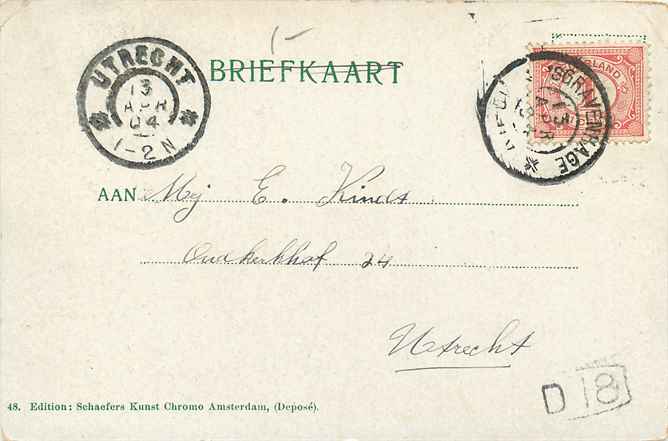 UTRECHT
13
APR
04
1-2N
BRIEFKAART
'SGRAVENHAGE
13
APR
AAN Mej E. Kinds
Oudkerkhof 24
Utrecht
D 18
48. Edition: Schaefers Kunst Chromo Amsterdam, (Deposé).